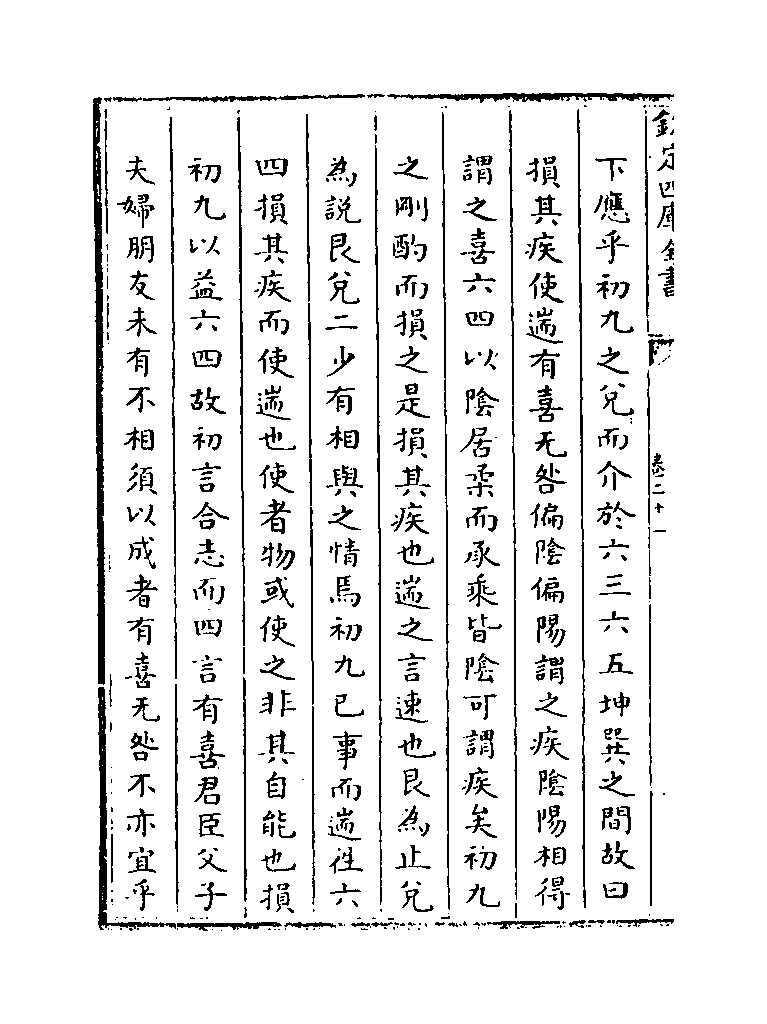 欽定四庫全書
卷二十一
下應乎初九之兌而介於六三六五坤巽之間故曰
損其疾使遄有喜无咎偏陰偏陽謂之疾陰陽相得
謂之喜六四以陰居柔而承乘皆陰可謂疾矣初九
之剛酌而損之是損其疾也遄之言速也艮為止兌
為説艮兌二少有相與之情焉初九已事而遄徃六
四損其疾而使遄也使者物或使之非其自能也損
初九以益六四故初言合志而四言有喜君臣父子
夫婦朋友未有不相須以成者有喜无咎不亦宜乎